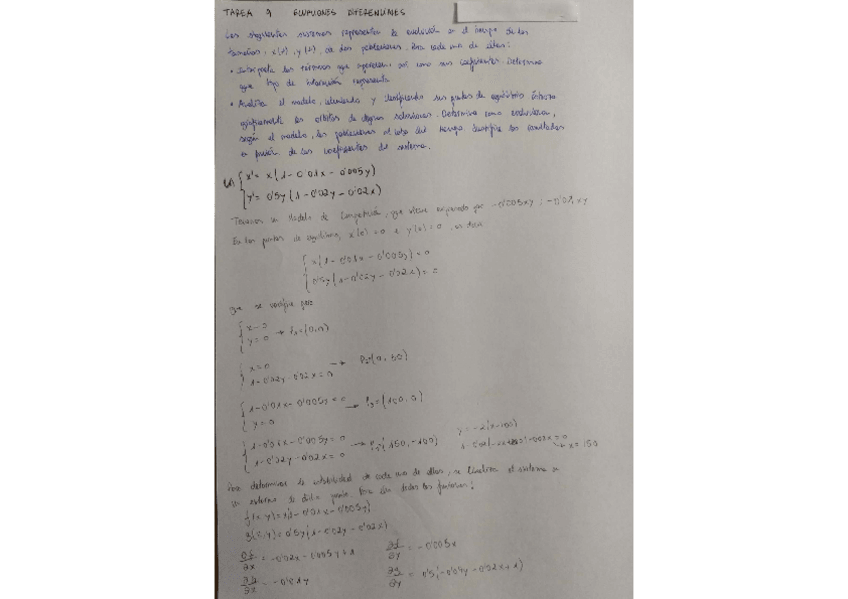 TAREA 9 ECUACIONES DIFERENCIALES
Los siguientes sistemas representan la evolución en el tiempo de los
tamaños, x(t), y(t), de dos poblaciones. Para cada uno de ellos:
• Interpreta los términos que aparecen, así como sus coeficientes. Determina
que tipo de interacción representa.
• Analiza el modelo, calculando y clasificando sus puntos de equilibrio. Esboza
gráficamente las órbitas de algunas soluciones. Determina como evolucionan,
según el modelo, las poblaciones al cabo del tiempo. Justifica los resultados
en función de los coeficientes del sistema.
x' = x(1 - 0'01x - 0'005y)
y' = 0'5y(1 - 0'02y - 0'02x)
Tenemos un Modelo de Competición, que viene expresado por -0'005xy; -0'01xy
En los puntos de equilibrio, x'(t) = 0 e y'(t) = 0, es decir
x(1 - 0'01x - 0'005y) = 0
0'5y(1 - 0'02y - 0'02x) = 0
que se verifica para
x = 0
y = 0 → P1 = (0,0)
x = 0
1 - 0'02y - 0'02x = 0 → P2 = (0, 50)
1 - 0'01x - 0'005y = 0
y = 0 → P3 = (100, 0)
1 - 0'01x - 0'005y = 0
1 - 0'02y - 0'02x = 0 → (150, -100)
y = -2(x-100)
x = 150
Para determinar la estabilidad de cada uno de ellos, se linealiza el sistema en
un entorno de dicho punto. Para ello dadas las funciones:
f(x,y) = x(1 - 0'01x - 0'005y)
g(x,y) = 0'5y(1 - 0'02y - 0'02x)
∂f/∂x = -0'02x - 0'005y + 1 ∂f/∂y = -0'005x
∂g/∂x = -0'01y ∂g/∂y = 0'5(-0'04y - 0'02x + 1)